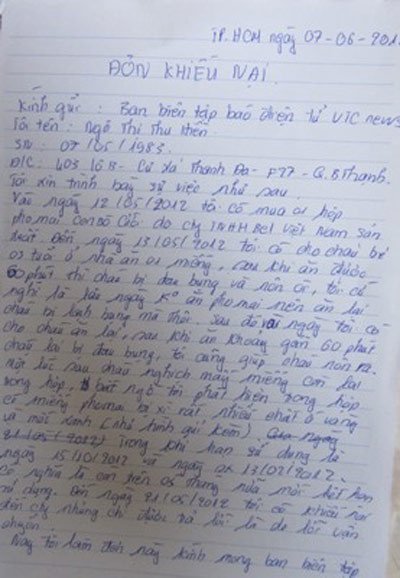 TP. HCM ngày 07-06-201
ĐƠN KHIẾU NẠI.
Kính gửi : Ban biên tập báo điện tử VTC news
Tôi tên : Ngô Thị Thu Hiền.
SN : 07/05/1983.
Đ/C : 403 lô B - Cư xá Thanh Đa - F27 - Q.B.Thạnh.
Tôi xin trình bày sự việc như sau.
Vào ngày 12/05/2012 tôi có mua 01 hộp
phomai con bò cười do cty TNHH Bel Việt Nam sản
xuất. Đến ngày 13/05/2012 tôi có cho cháu bé
03 tuổi ở nhà ăn 01 miếng, sau khi ăn được
60 phút thì cháu bị đau bụng và nôn ói, tôi cứ
nghĩ là lâu ngày ko ăn phomai nên ăn lại
cháu bị lạnh bụng mà thôi. Sau đó vài ngày tôi có
cho cháu ăn lại, sau khi ăn khoảng gần 60 phút
cháu lại bị đau bụng, tôi cũng giúp cháu nôn ra.
Một lúc sau cháu nghịch mấy miếng còn lại
trong hộp, bất ngờ tôi phát hiện trong hộp
có miếng phomai bị xì nát nhiều chất ố vàng
và mốc xanh (như hình gửi kèm)
21/05/2012) Trong khi hạn sử dụng là
ngày 15/10/2012 và ngày 13/02/2012.
Có nghĩa là còn trên 05 tháng nữa mới hết hạn
sử dụng. Đến ngày 21/05/2012 tôi có khiếu nại
đến cty nhưng chỉ được trả lời là do lỗi vận
chuyển.
Nay tôi làm đơn này kính mong ban biên tập